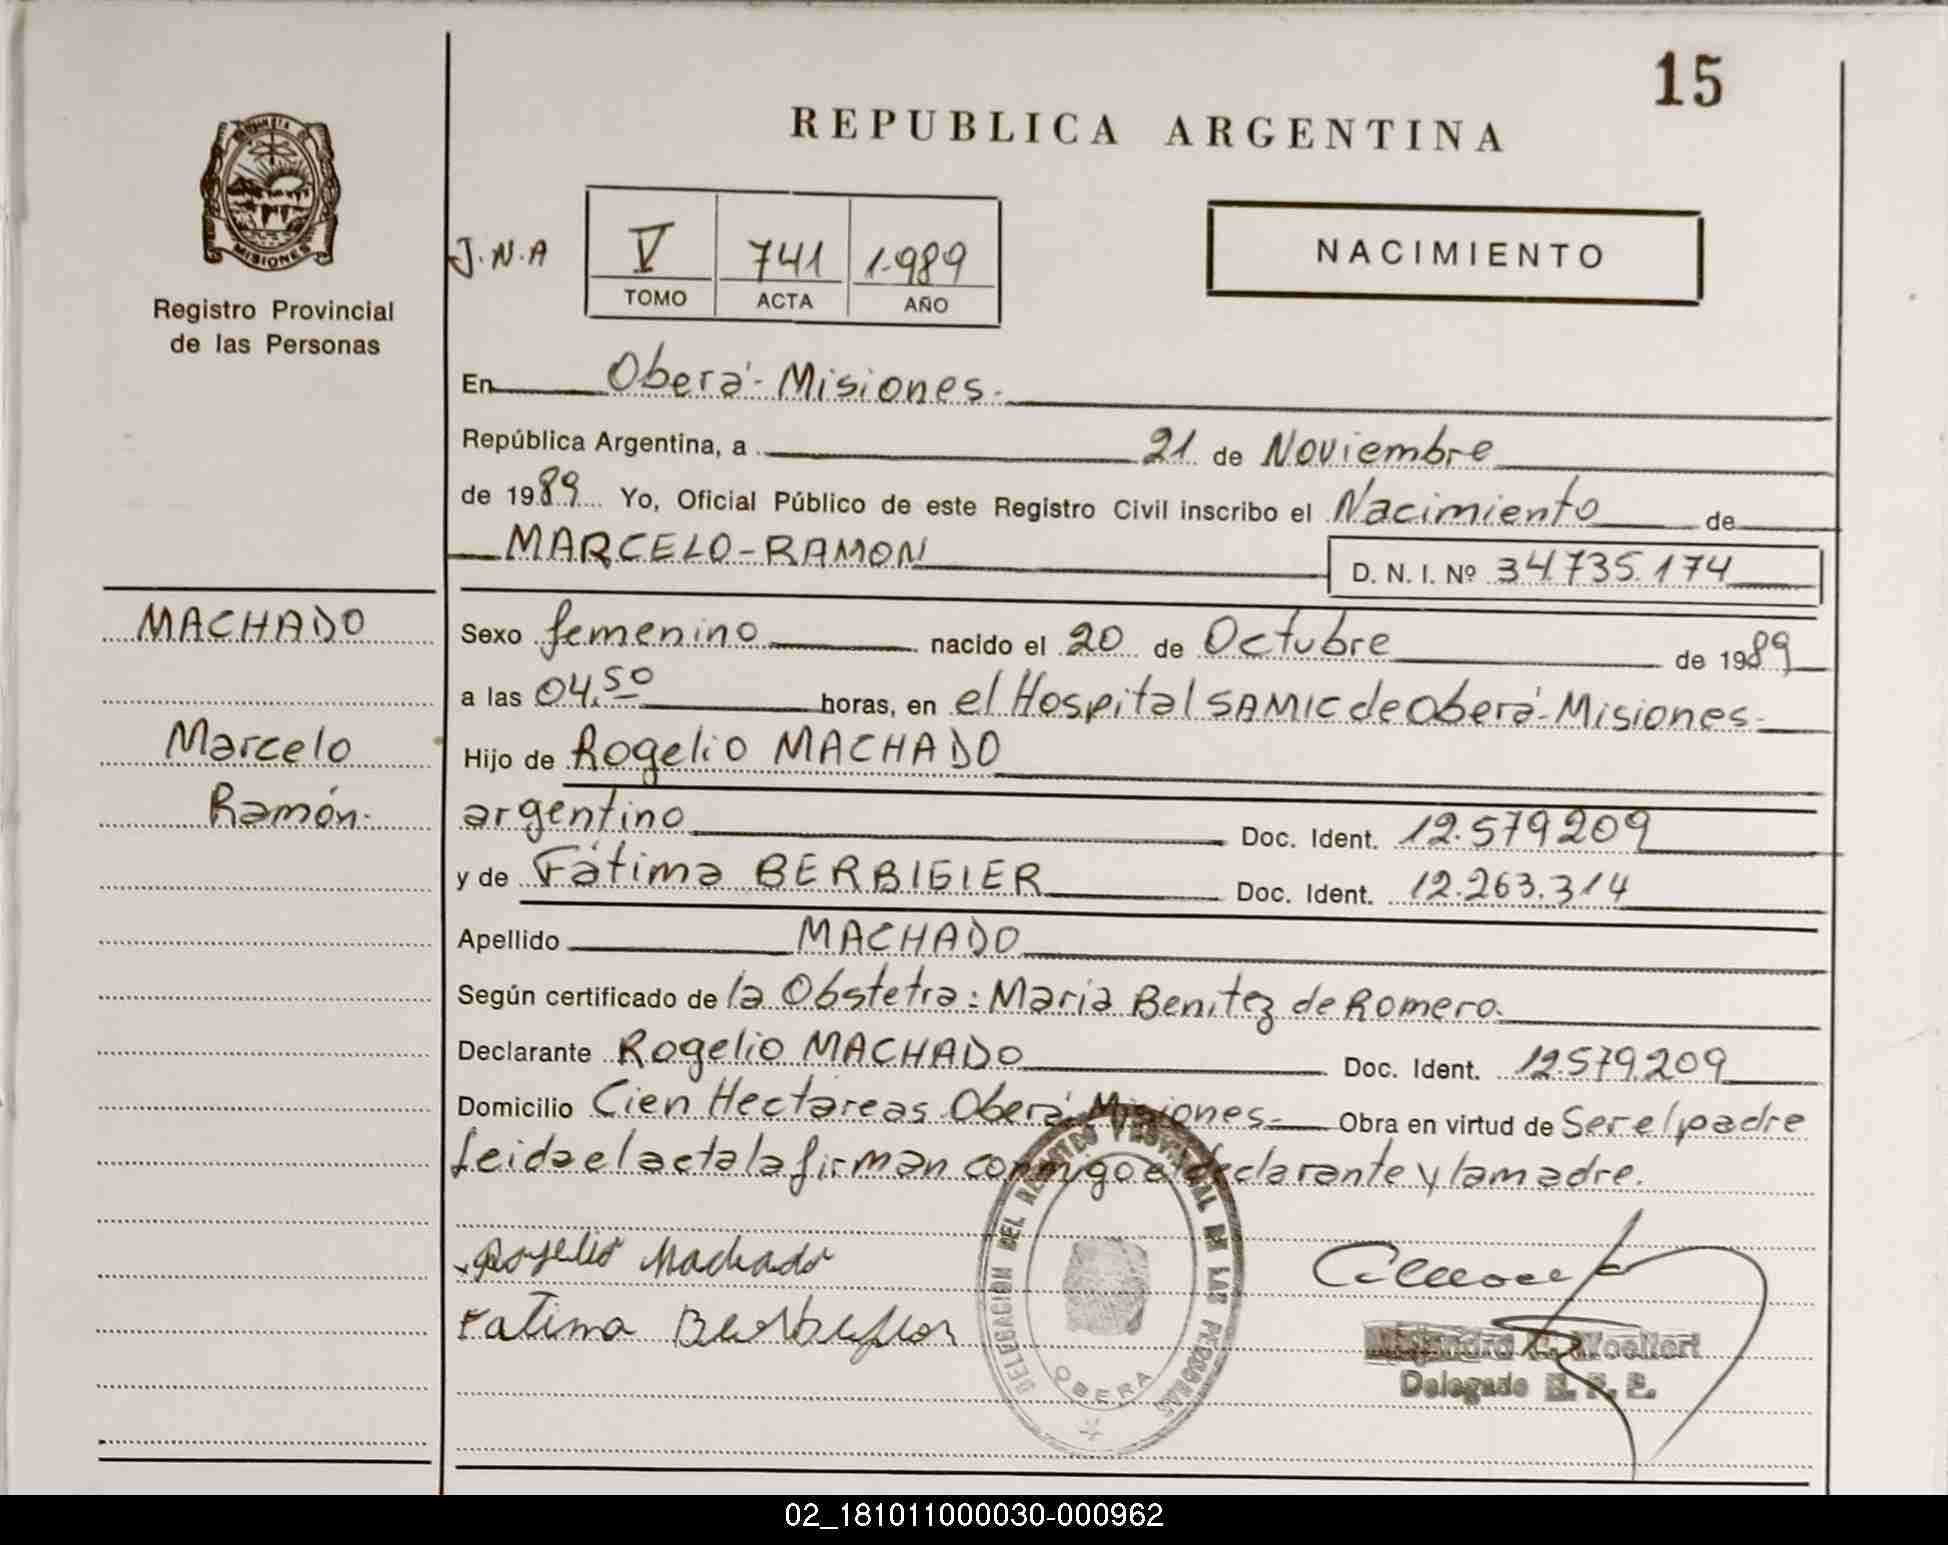 15
REPUBLICA ARGENTINA
PROVINCIA DE
MISIONES
Registro Provincial
de las Personas
J.N.A
V 741 1.989
TOMO ACTA AÑO
NACIMIENTO
En Oberá - Misiones.
República Argentina, a 21 de Noviembre
de 1989 Yo, Oficial Público de este Registro Civil inscribo el Nacimiento de
MARCELO-RAMON D. N. I. Nº 34.735.174
MACHADO
Marcelo
Ramón.
Sexo femenino nacido el 20 de Octubre de 1989
a las 04,50 horas, en el Hospital SAMIC de Oberá - Misiones.
Hijo de Rogelio MACHADO
argentino Doc. Ident. 12.579209
y de Fátima BERBIGIER Doc. Ident. 12.263.314
Apellido MACHADO
Según certificado de la Obstetra: Maria Benitez de Romero.
Declarante Rogelio MACHADO Doc. Ident. 12.579.209
Domicilio Cien Hectáreas Oberá Misiones Obra en virtud de Ser el padre
Leida el acta la firman conmigo el declarante y la madre.
Rogelio Machado
Fatima
DELEGACION DEL REGISTRO PROVINCIAL DE LAS PERSONAS
OBERA
Woellert
Delegado R. P. P.
02_181011000030-000962